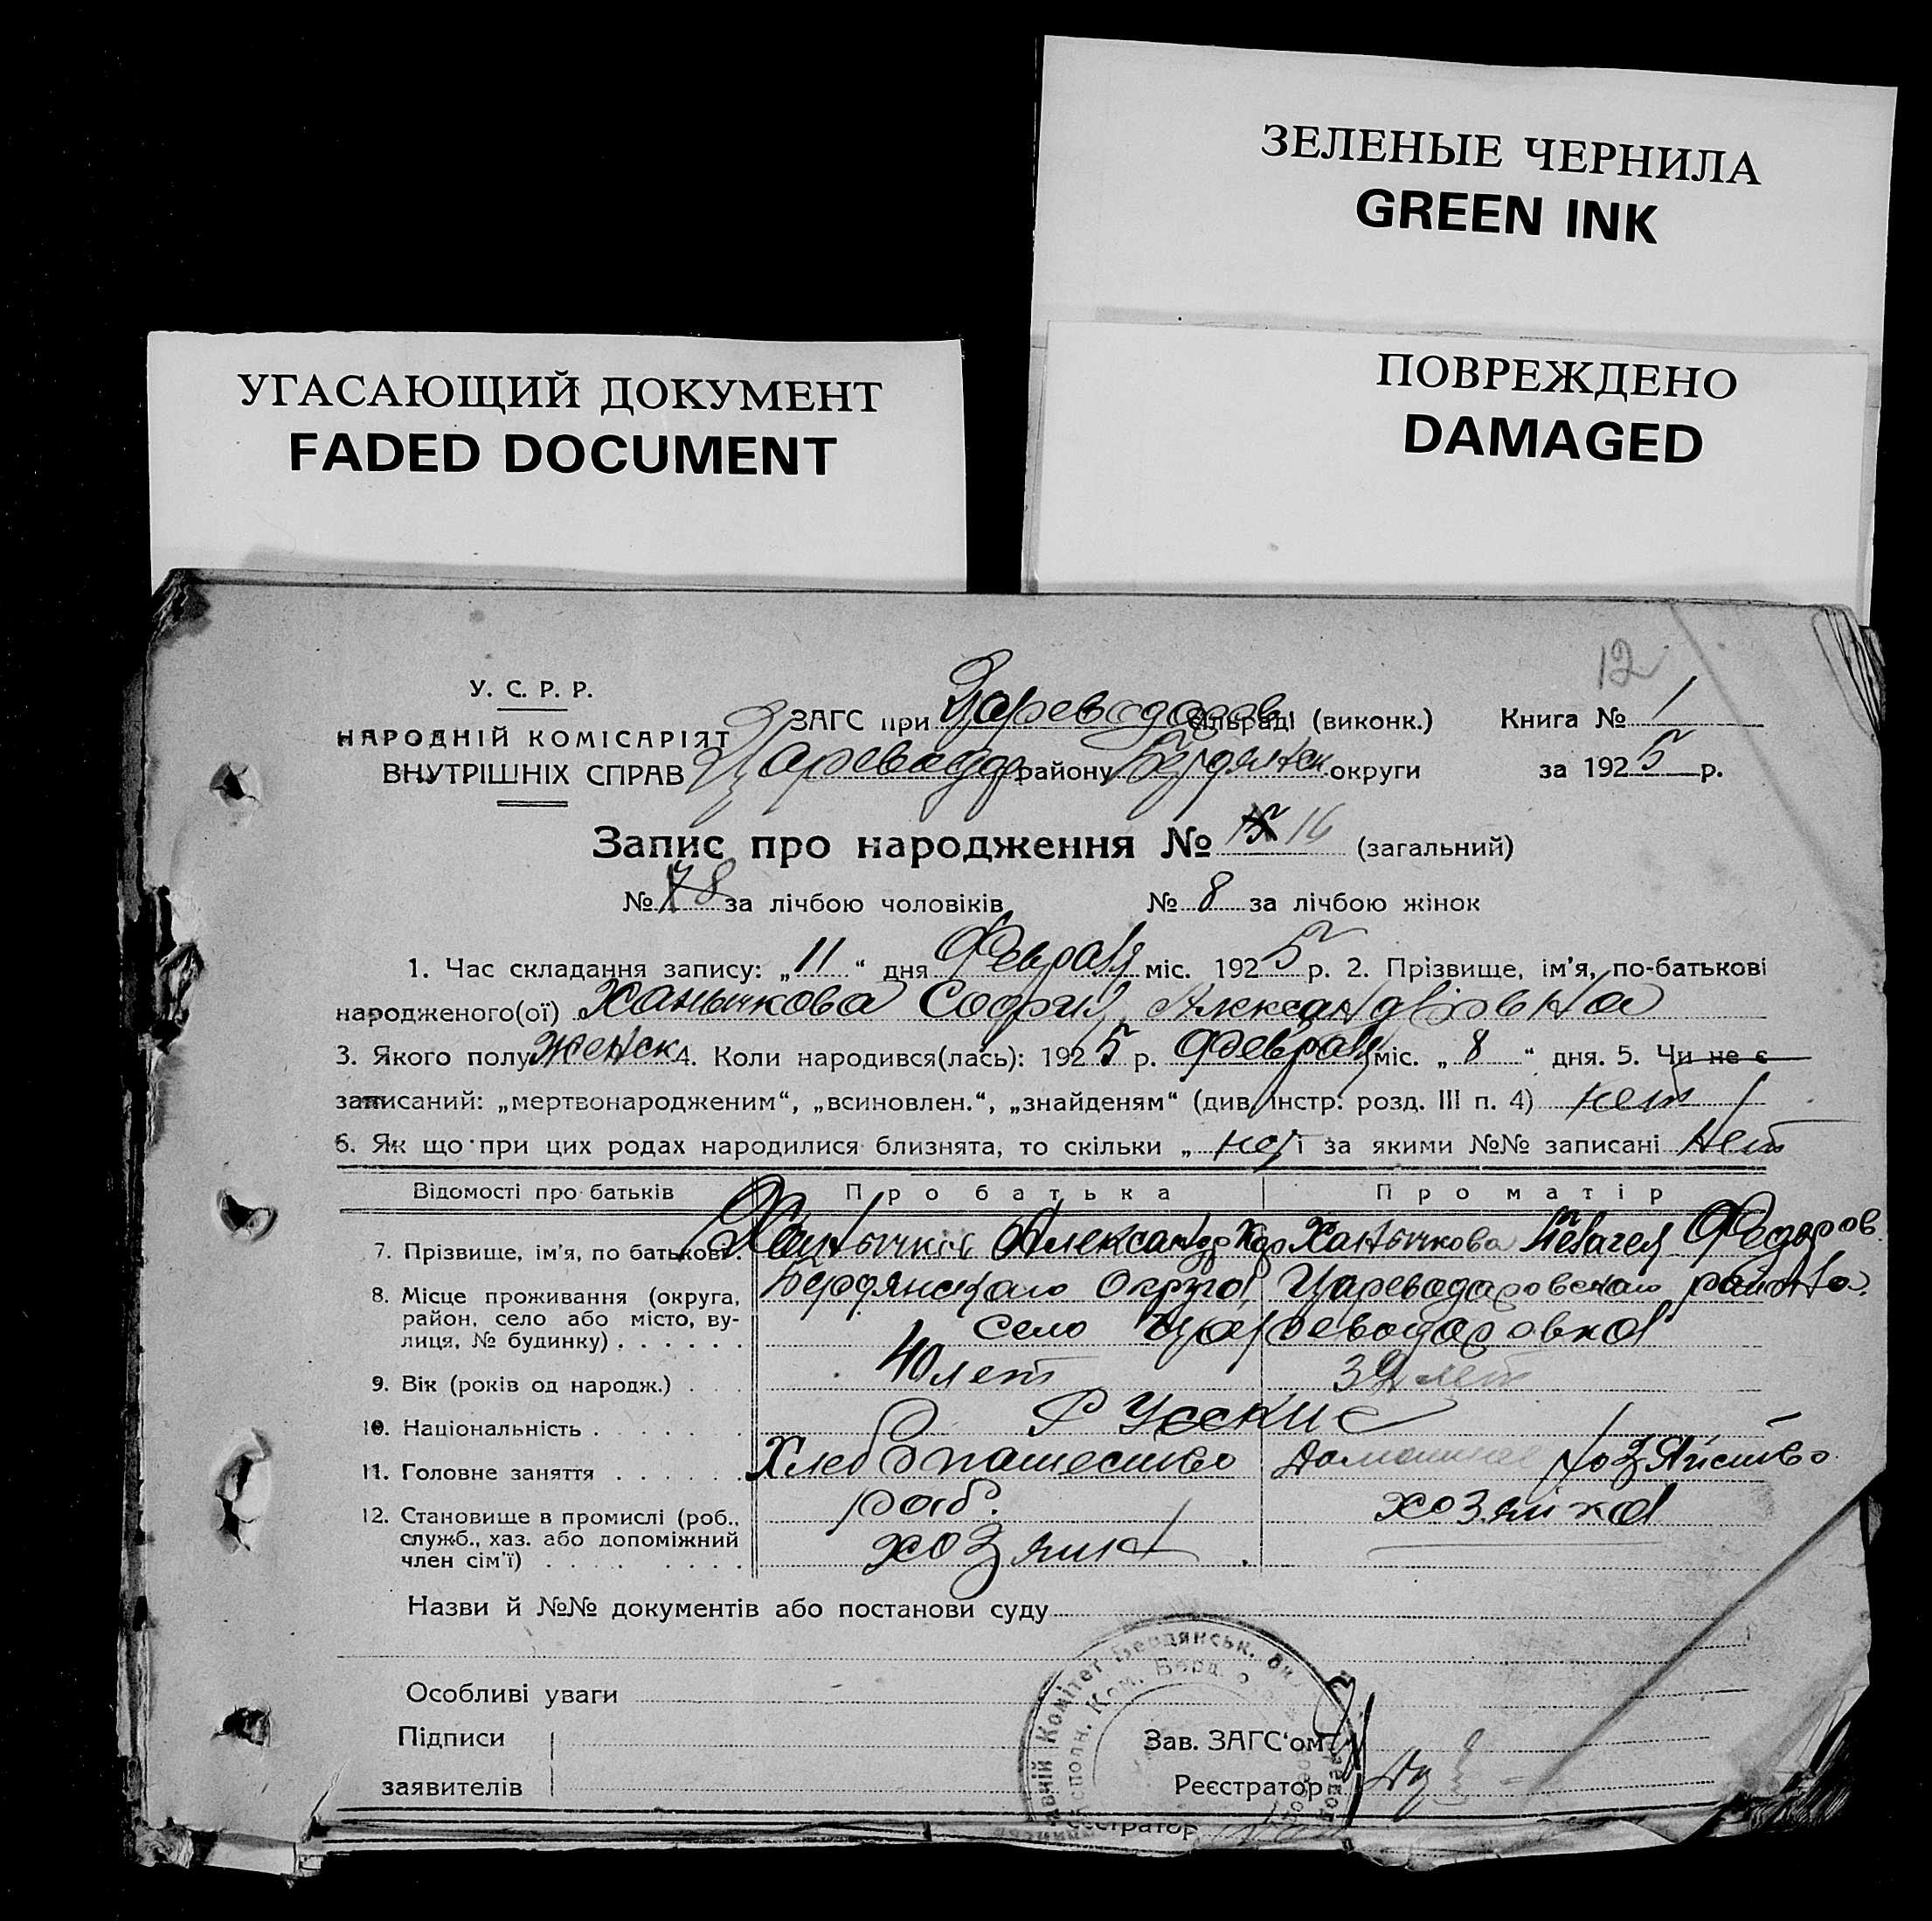 ЗЕЛЕНЫЕ ЧЕРНИЛА
GREEN INK
УГАСАЮЩИЙ ДОКУМЕНТ
FADED DOCUMENT
ПОВРЕЖДЕНО
DAMAGED
12
У. С. Р. Р.
НАРОДНІЙ КОМІСАРІЯТ
ВНУТРІШНІХ СПРАВ
ЗАГС при Цареводаров сільраді (виконк.) Книга № 1
Цареводар району Бердянск округи за 1925 р.
Запис про народження № 15 16 (загальний)
№ 78 за лічбою чоловіків № 8 за лічбою жінок
1. Час складання запису: „11“ дня Февраля міс. 1925 р. 2. Прізвище, ім'я, по-батькові
народженого(ої) Ханычкова София Александровна
3. Якого полу женск 4. Коли народився(лась): 1925 р. Февраля міс. „8“ дня. 5. Чи не є
записаний: „мертвонародженим“, „всиновлен.“, „знайденям“ (див. Інстр. розд. III п. 4) нет
6. Як що при цих родах народилися близнята, то скільки „ і за якими №№ записані нет
Відомості про батьків Про батька Про матір
7. Прізвище, ім'я, по батькові. Александр Ханычкова Пелагея Федоров
8. Місце проживання (округа, район, село або місто, вулиця, № будинку) Бердянскаго Округа, Цареводаровскаго района
село Цареводаровка
9. Вік (років од народж.) 40 лет 39 лет
10. Національність Русские
11. Головне заняття Хлебопашество Домашнее хозяйство
12. Становище в промислі (роб., служб., хаз. або допоміжний член сім'ї) раб. хозяин хозяйка
Назви й №№ документів або постанови суду
Особливі уваги
Підписи
заявителів
Зав. ЗАГС'ом
Реєстратор